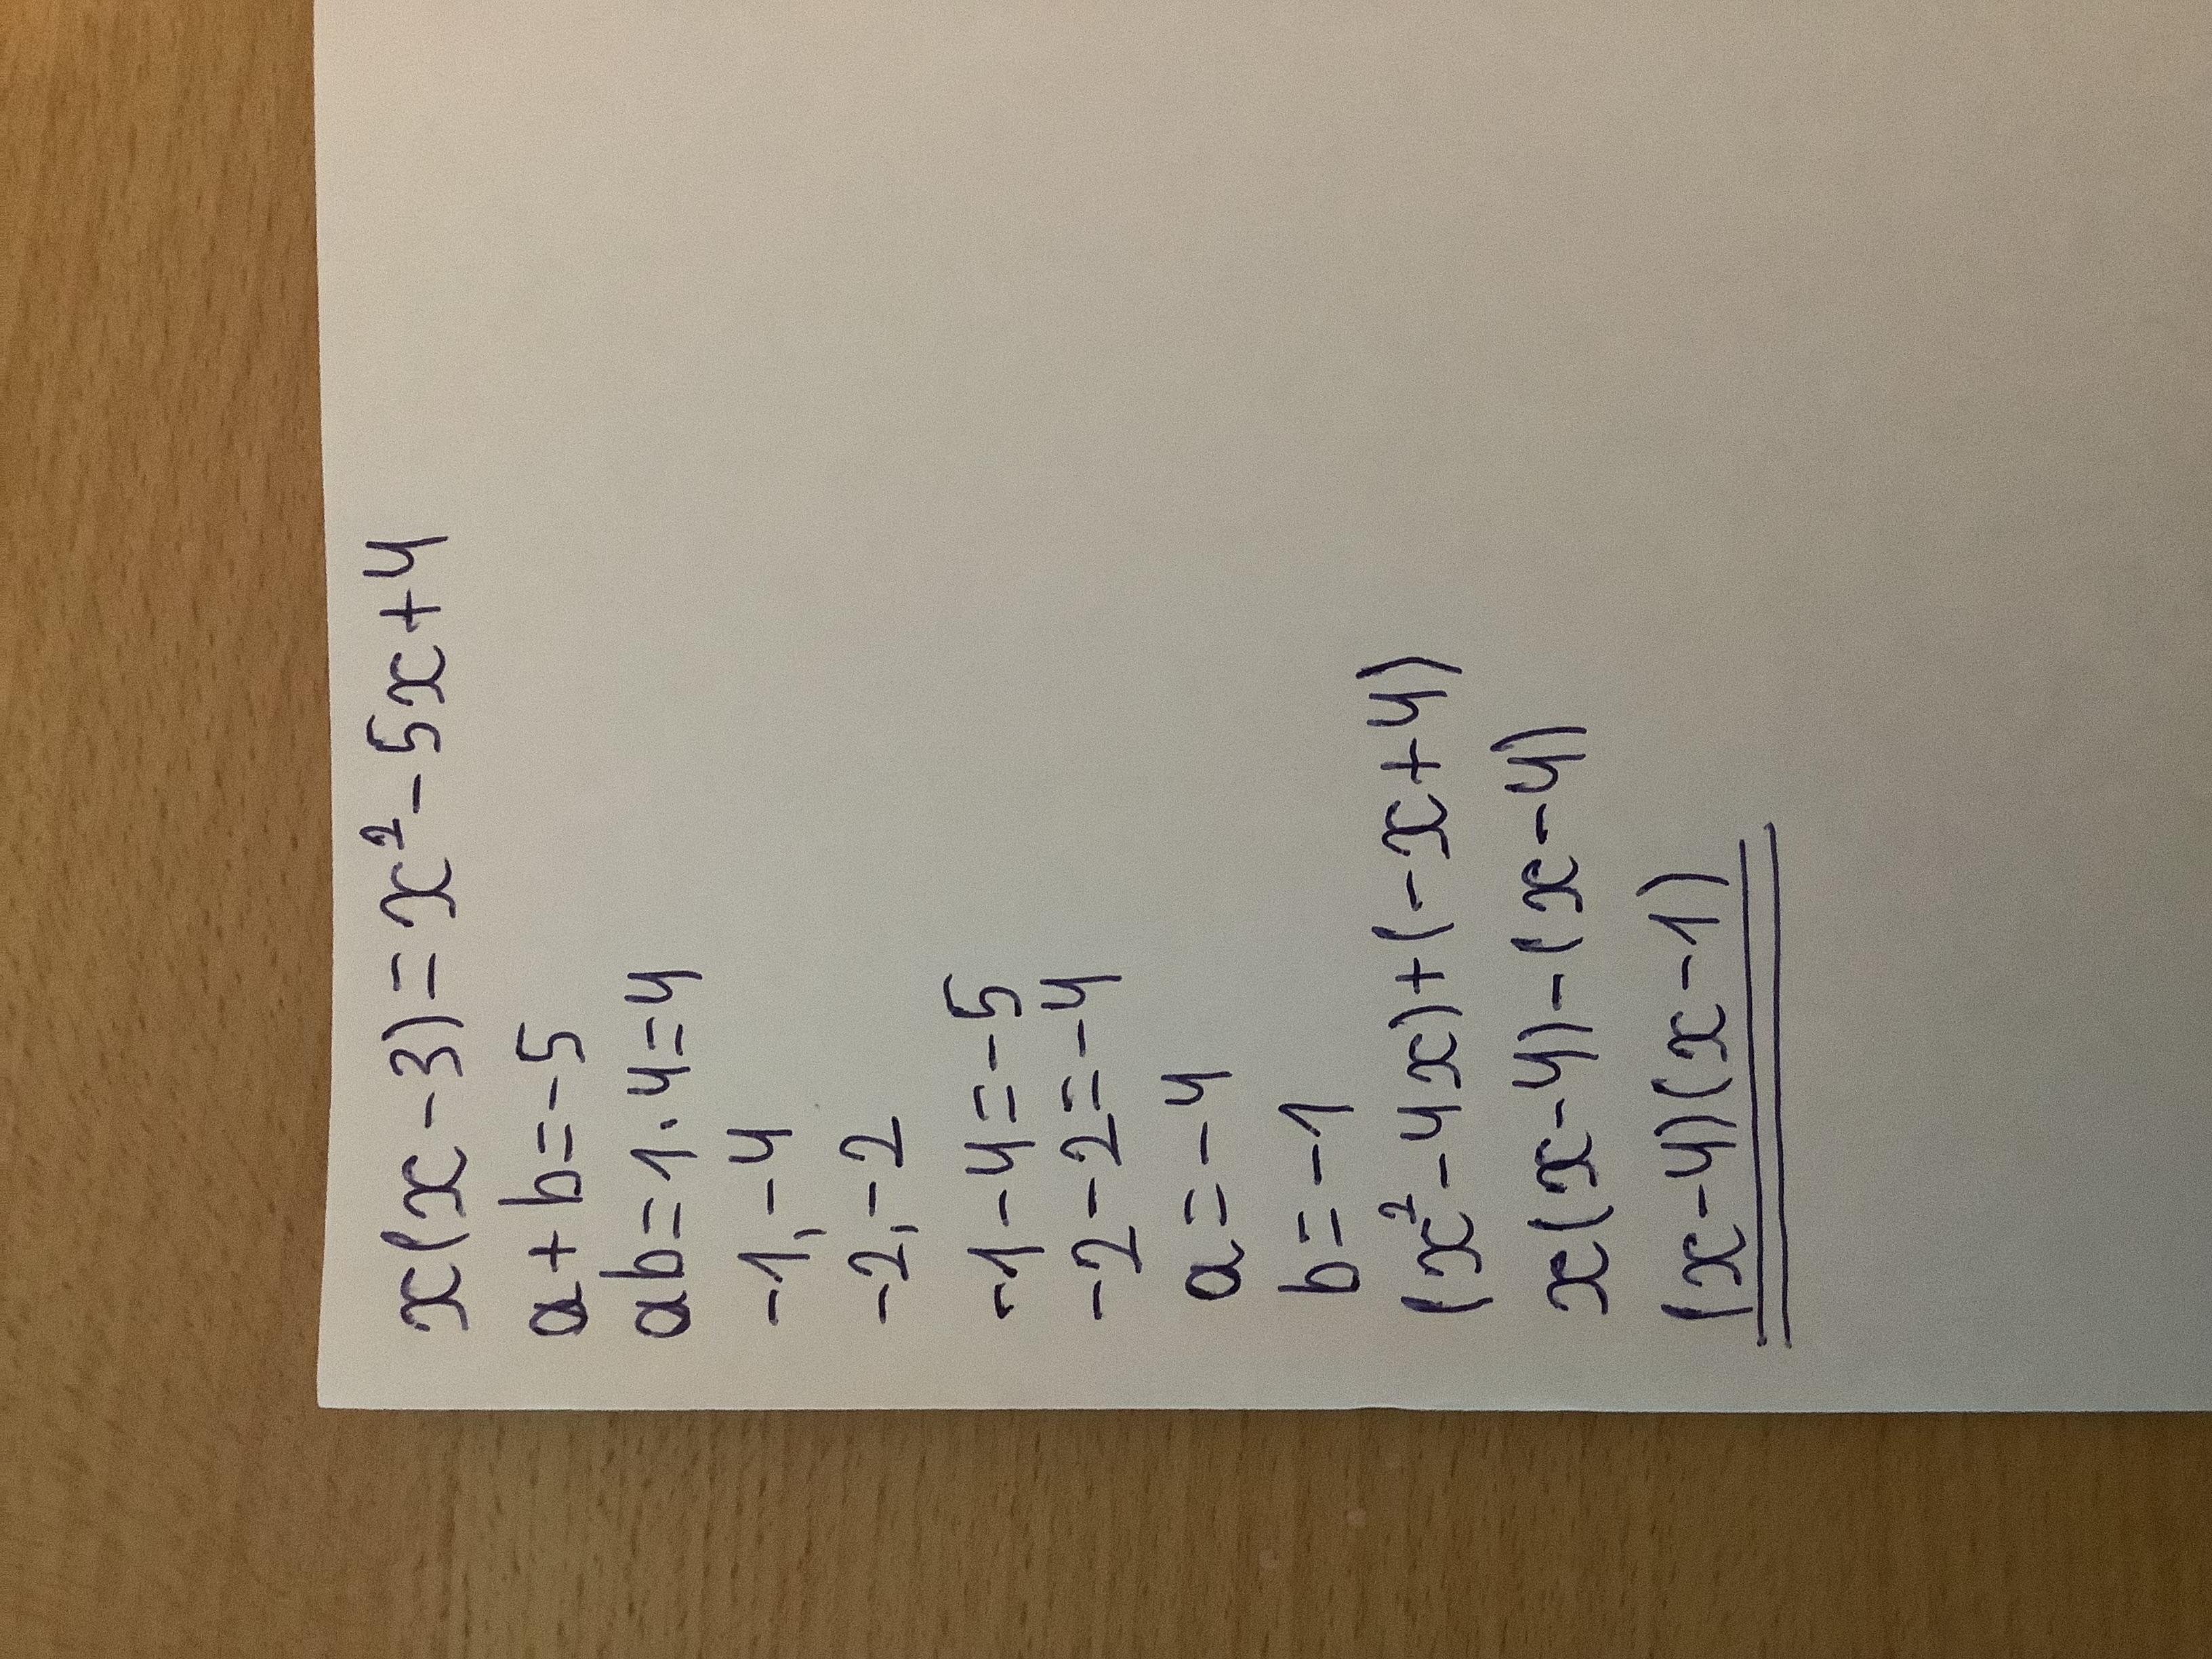 x(x-3)=x²-5x+4
a+b=-5
ab=1·4=4
-1,-4
-2,-2
-1-4=-5
-2-2=-4
a=-4
b=-1
(x²-4x)+(-x+4)
x(x-4)-(x-4)
(x-4)(x-1)